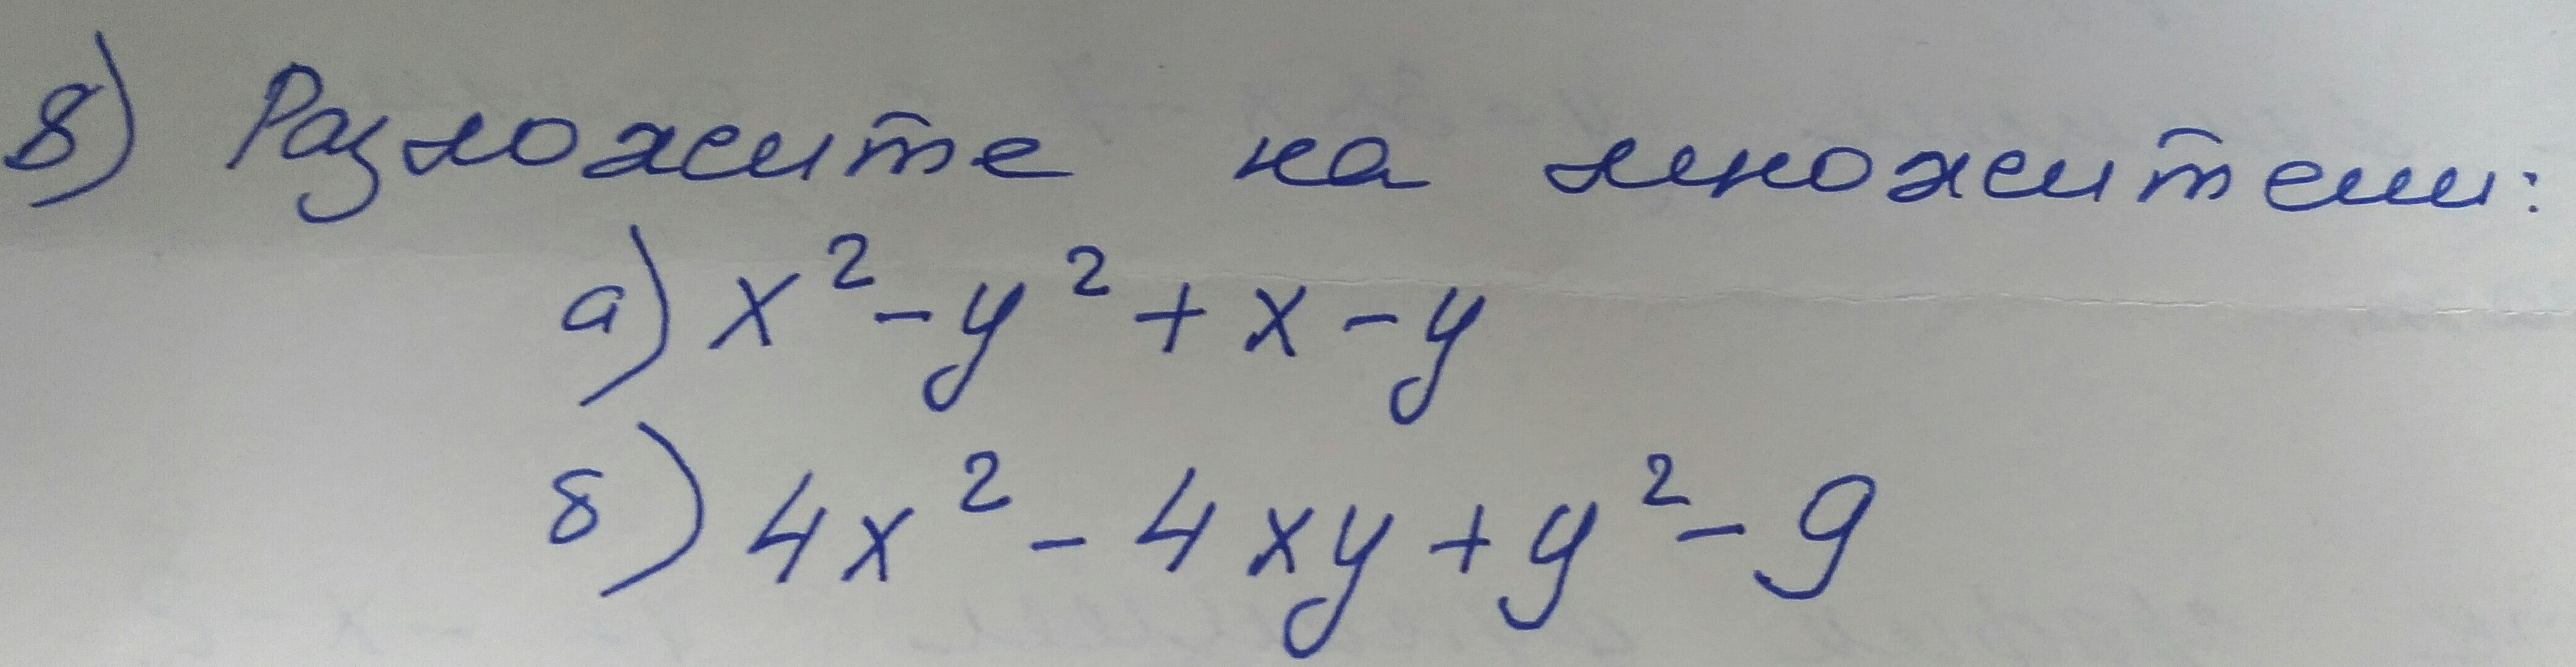 8) Разложите на множители:
а) x² - y² + x - y
б) 4x² - 4xy + y² - 9